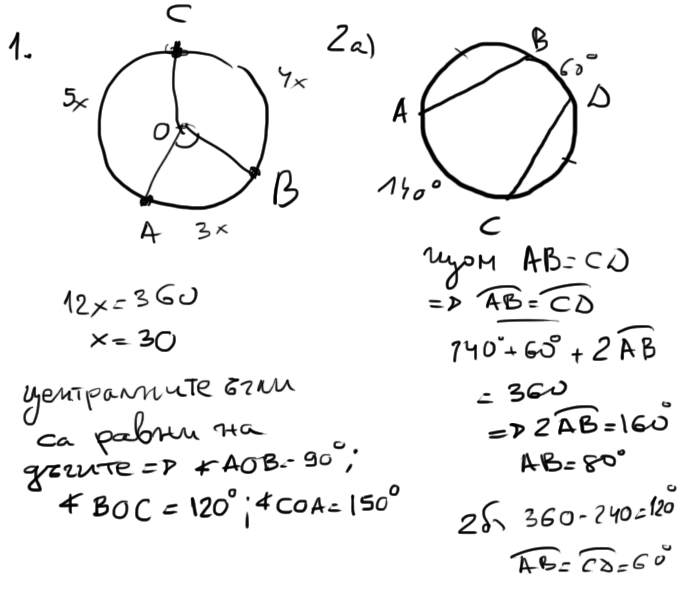 1.
C
5x
4x
O
B
A
3x
12x = 360
x = 30
централните ъгли
са равни на
дъгите => ∢AOB = 90°;
∢BOC = 120°; ∢COA = 150°
2а)
B
60°
A
D
140°
C
щом AB = CD
=> A͡B = C͡D
140° + 60° + 2A͡B
= 360
=> 2A͡B = 160°
AB = 80°
2б) 360 - 240 = 120°
A͡B = C͡D = 60°